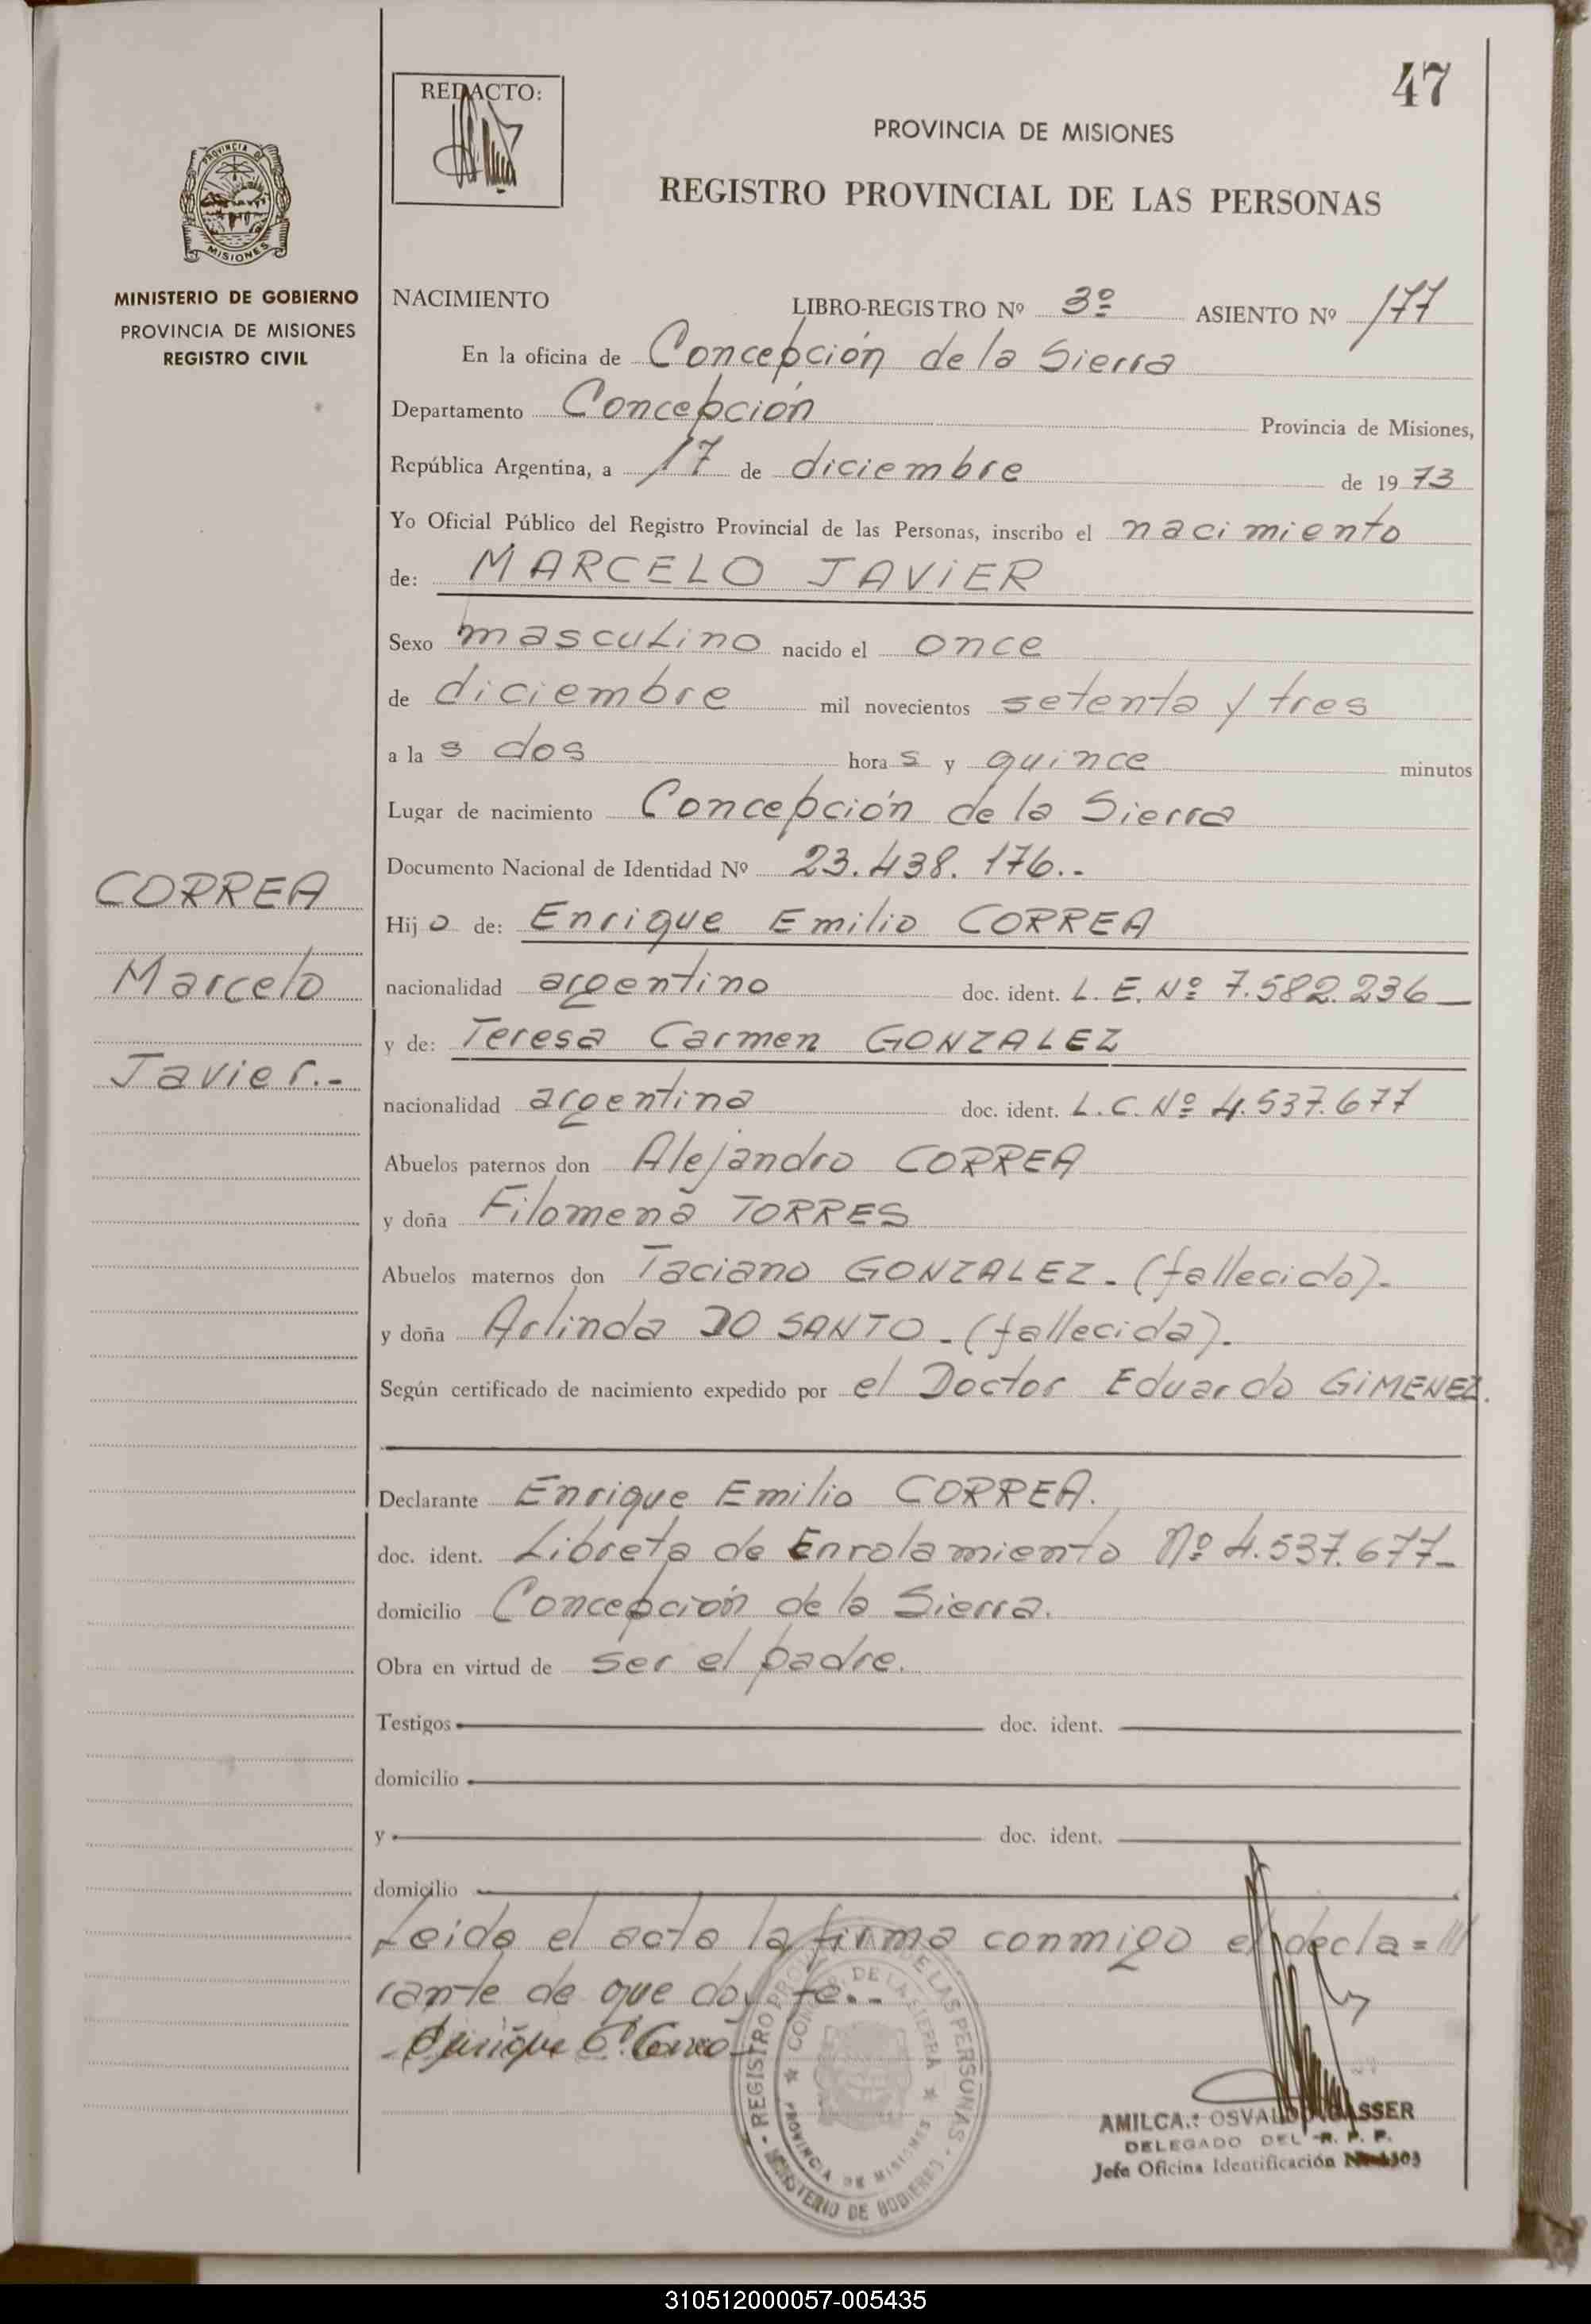 47
REDACTO:
PROVINCIA DE MISIONES
REGISTRO PROVINCIAL DE LAS PERSONAS
PROVINCIA DE
MISIONES
MINISTERIO DE GOBIERNO
PROVINCIA DE MISIONES
REGISTRO CIVIL
NACIMIENTO LIBRO-REGISTRO Nº 3º ASIENTO Nº 177
En la oficina de Concepción de la Sierra
Departamento Concepción Provincia de Misiones,
República Argentina, a 17 de diciembre de 1973
Yo Oficial Público del Registro Provincial de las Personas, inscribo el nacimiento
de: MARCELO JAVIER
Sexo masculino nacido el once
de diciembre mil novecientos setenta y tres
a las dos horas y quince minutos
Lugar de nacimiento Concepción de la Sierra
Documento Nacional de Identidad Nº 23.438.176.-
CORREA
Marcelo
Javier.-
Hijo de: Enrique Emilio CORREA
nacionalidad argentino doc. ident. L. E. Nº 7.582.236-
y de: Teresa Carmen GONZALEZ
nacionalidad argentina doc. ident. L. C. Nº 4.537.677
Abuelos paternos don Alejandro CORREA
y doña Filomena TORRES
Abuelos maternos don Taciano GONZALEZ.- (fallecido).-
y doña Arlinda DO SANTO.- (fallecida).-
Según certificado de nacimiento expedido por el Doctor Eduardo GIMENEZ.
Declarante Enrique Emilio CORREA.
doc. ident. Libreta de Enrolamiento Nº 4.537.677-
domicilio Concepción de la Sierra.
Obra en virtud de ser el padre.
Testigos doc. ident.
domicilio
y doc. ident.
domicilio
Leida el acta la firma conmigo el decla=
rante de que doy fe.-
Enrique E. Correa
REGISTRO PROVINCIAL DE LAS PERSONAS
CONCEP. DE LA SIERRA
PROVINCIA DE MISIONES
MINISTERIO DE GOBIERNO
OSVALDO
DELEGADO DEL R. P. P.
Jefe Oficina Identificación
310512000057-005435